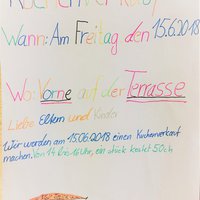 Kuchenverkauf
Wann: Am Freitag den 15.6.2018
Wo: Vorne auf der Terrasse
Liebe Eltern und Kinder
Wir werden am 15.06.2018 einen Kuchenverkauf
machen. Von 14 bis 16 Uhr, ein stück kostet 50ch